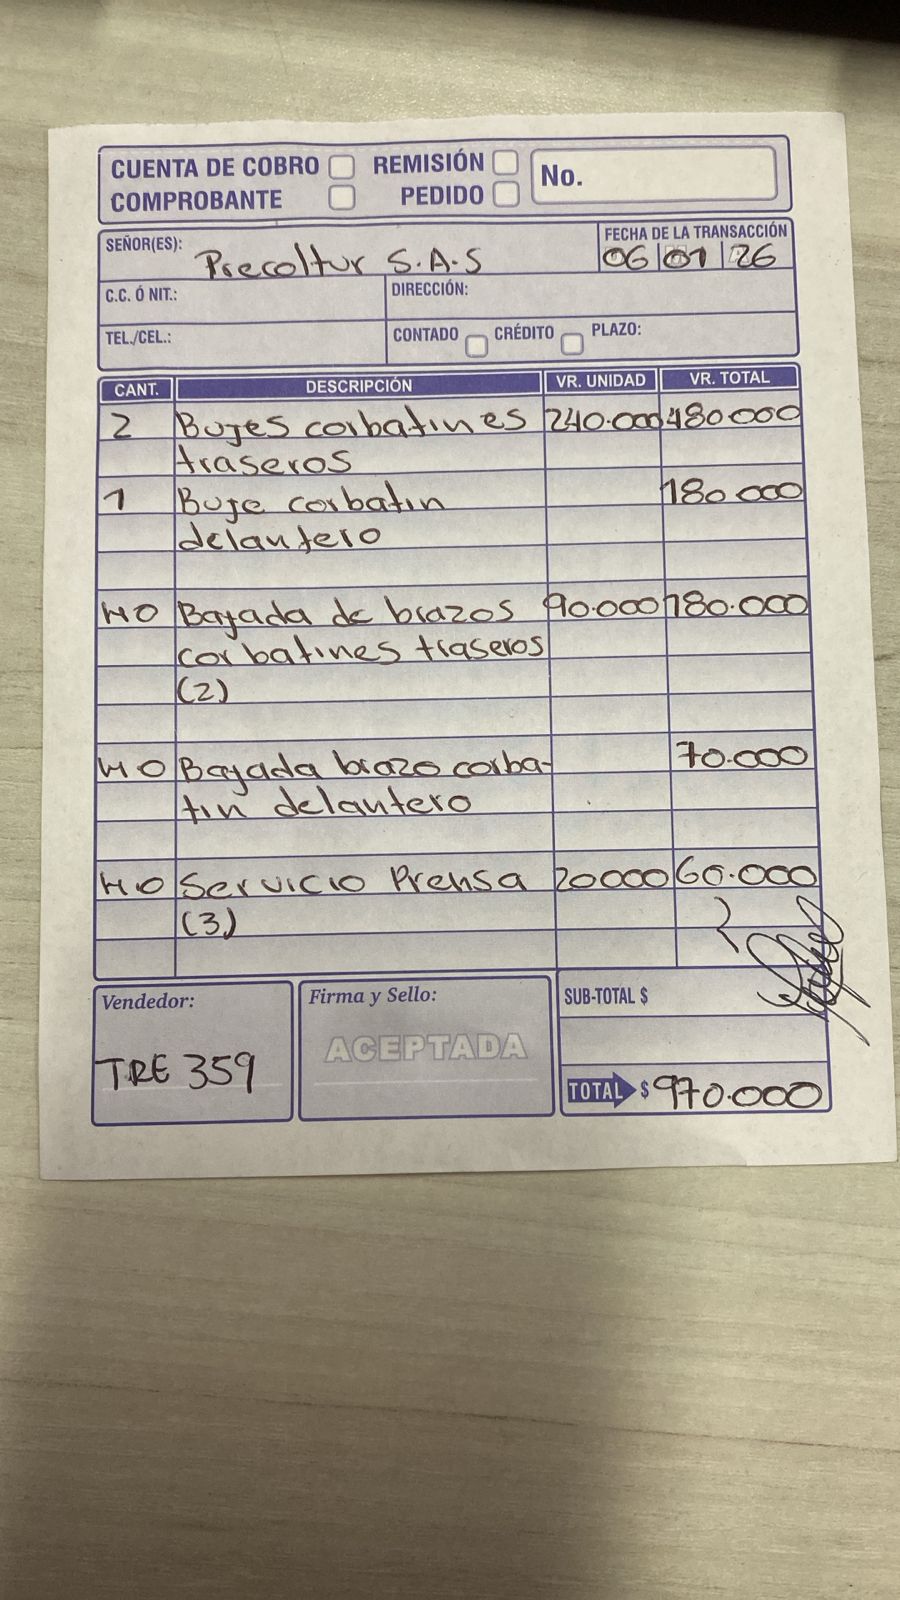 CUENTA DE COBRO REMISIÓN No.
COMPROBANTE PEDIDO
SEÑOR(ES): Precoltur S.A.S FECHA DE LA TRANSACCIÓN
06 01 26
C.C. Ó NIT.: DIRECCIÓN:
TEL./CEL.: CONTADO CRÉDITO PLAZO:
CANT. DESCRIPCIÓN VR. UNIDAD VR. TOTAL
2 Bujes corbatines 240.000 480.000
traseros
1 Buje corbatin 180 000
delantero
MO Bajada de brazos 90.000 180.000
corbatines traseros
(2)
MO Bajada brazo corba- 70.000
tin delantero
MO Servicio Prensa 20000 60.000
(3)
Vendedor: Firma y Sello: SUB-TOTAL $
ACEPTADA
TRE 359
TOTAL $ 970.000